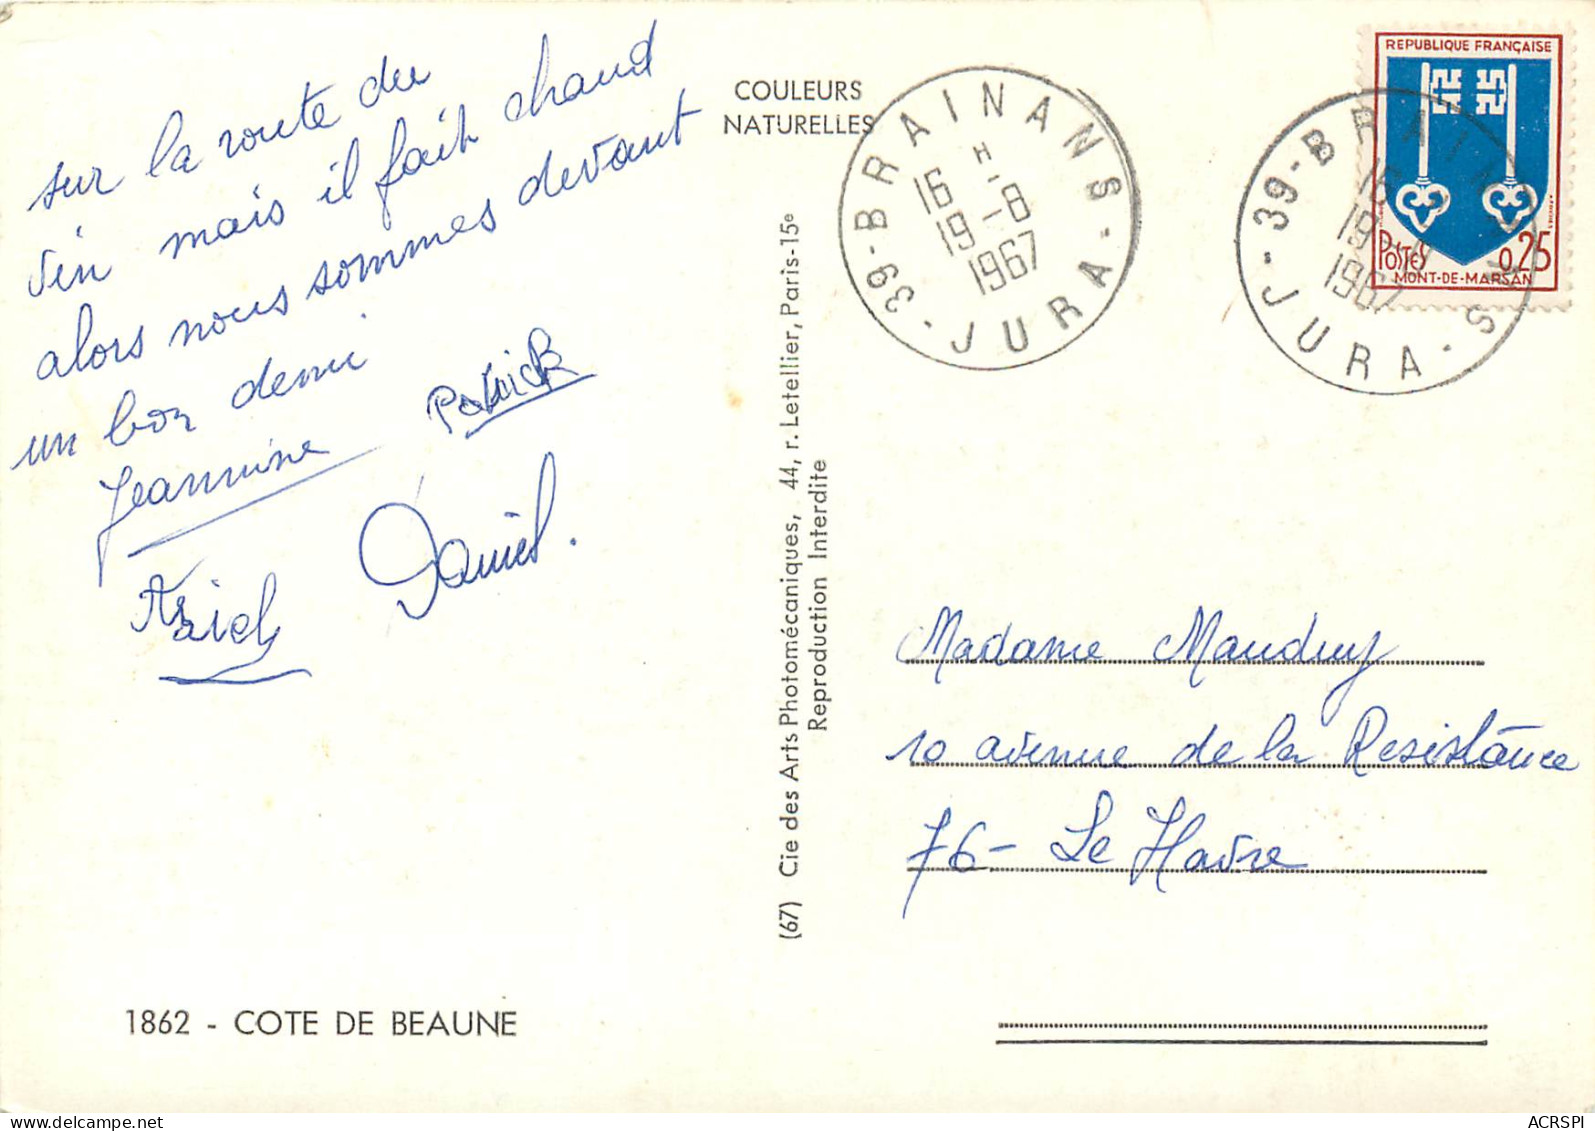 sur la route du
vin mais il fait chaud
alors nous sommes devant
un bon demi
Jeannine
Patrick
Daniel.
COULEURS
NATURELLES
39-BRAINANS-JURA-
16 H
19-8
1967
REPUBLIQUE FRANÇAISE
POSTES 0,25
MONT-DE-MARSAN
39-BRAINANS-JURA-
16
19-8
1967
(67) Cie des Arts Photomécaniques, 44, r. Letellier, Paris-15e
Reproduction Interdite
Madame Mauduy
10 avenue de la Resistance
76- Le Havre
1862 - COTE DE BEAUNE
delcampe.net
ACRSPI